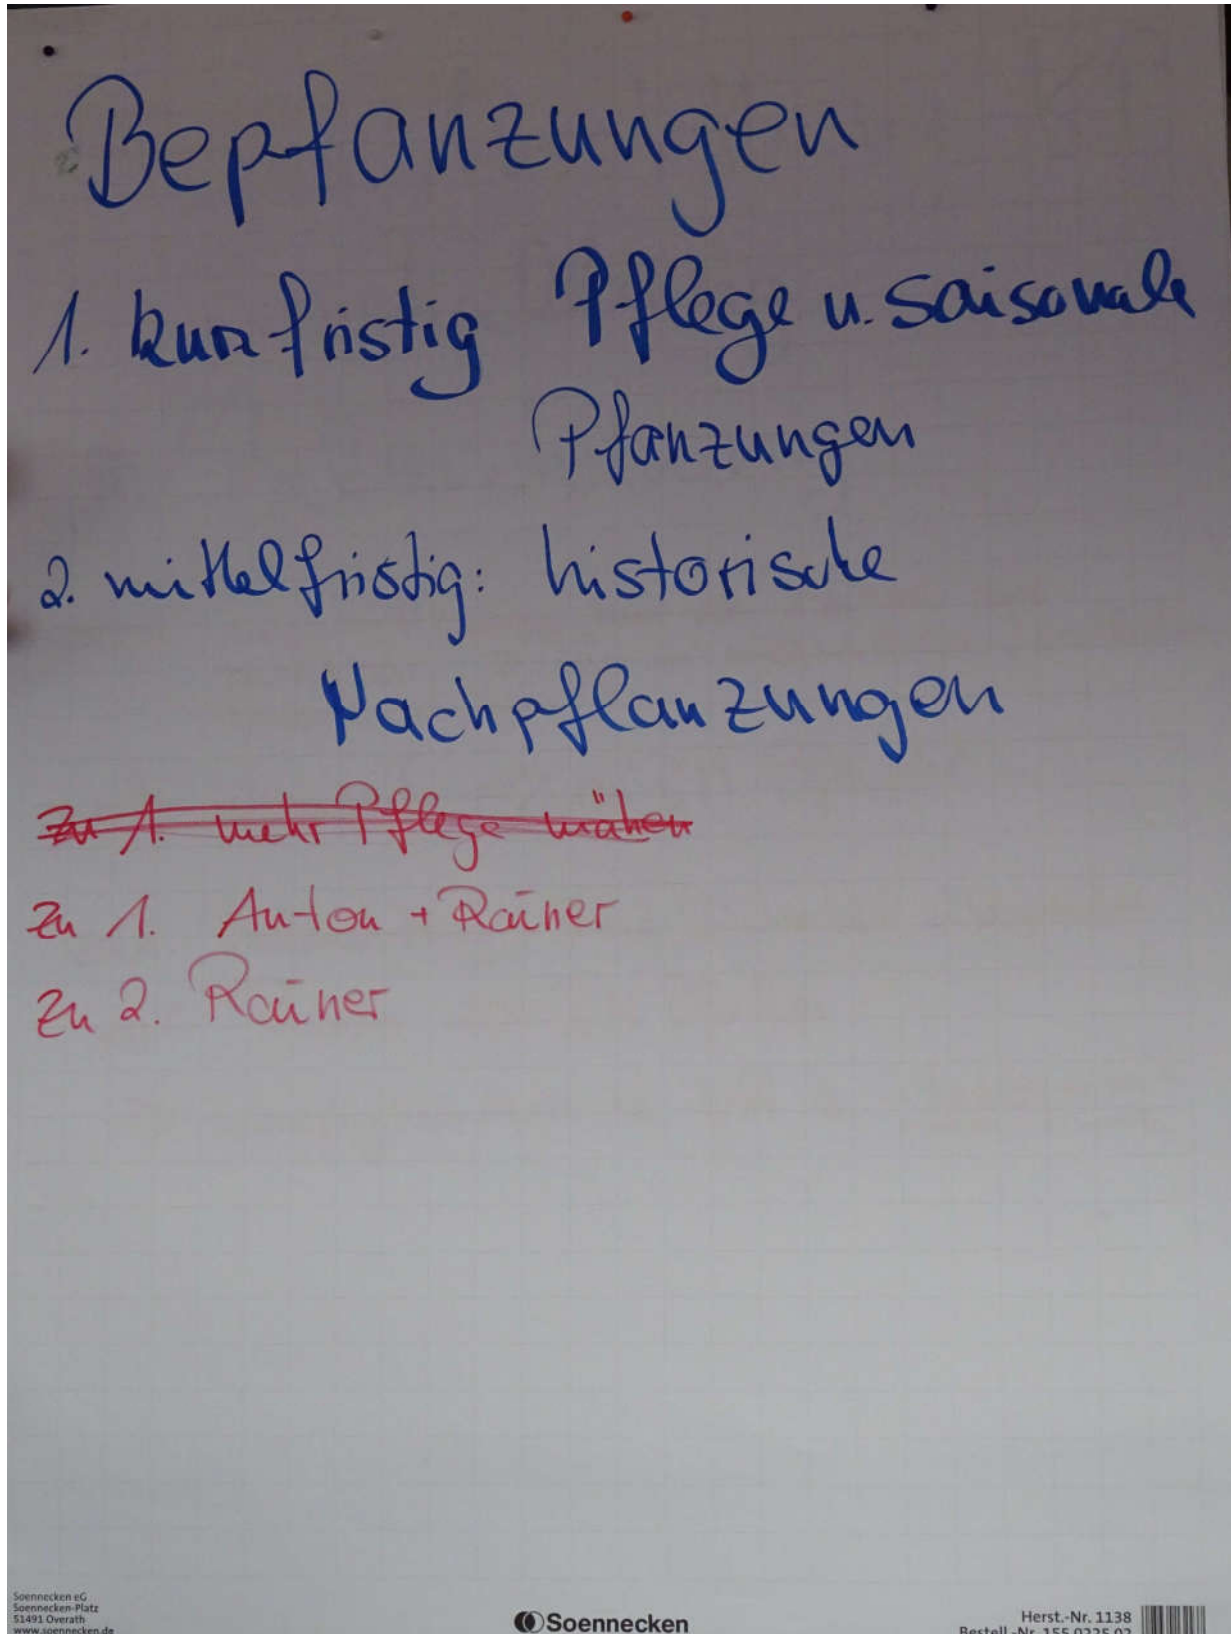 Bepfanzungen
1. kurzfristig Pflege u. saisonale
Pfanzungen
2. mittelfristig: historische
Nachpflanzungen
zu 1. mehr Pflege mähen
zu 1. Anton + Rainer
zu 2. Rainer
Soennecken eG
Soennecken-Platz
51491 Overath
www.soennecken.de
Soennecken
Herst.-Nr. 1138
Bestell.-Nr. 155 0225 02